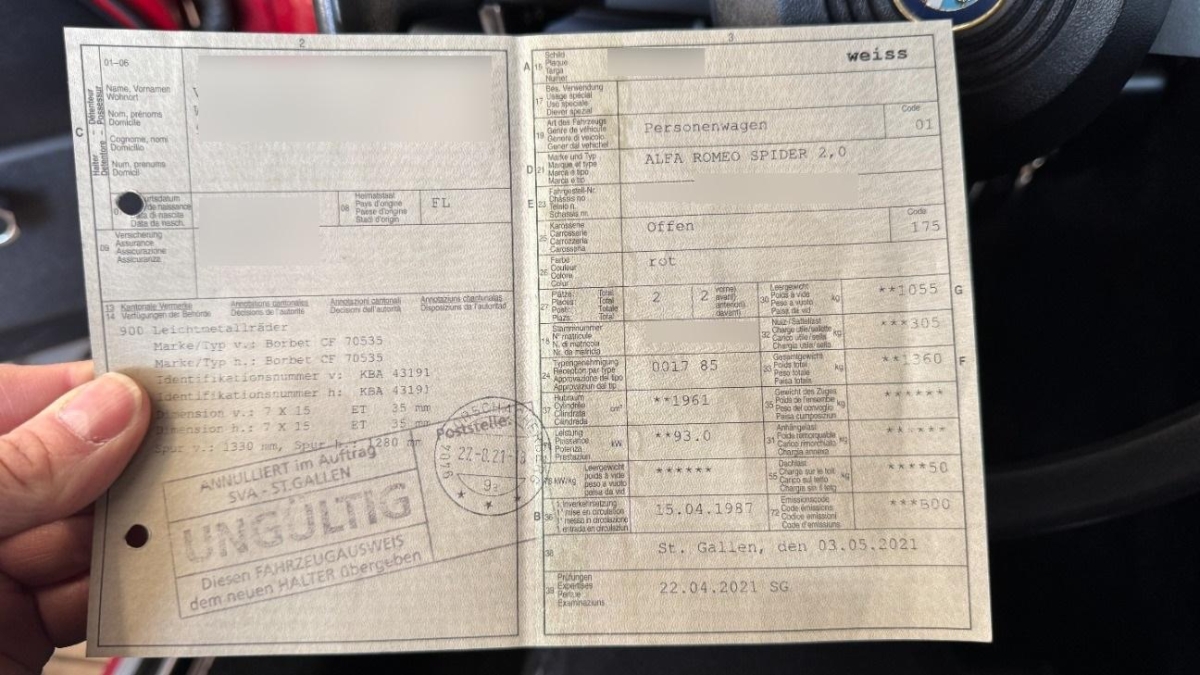 2
01-06
Name, Vornamen
Wohnort
Nom, prénoms
Domicile
Cognome, nomi
Domicilio
Num, prenums
Domicil
C
Halter
Détenteur
Detentore
Possessur
08
Heimatstaat
Pays d'origine
Paese d'origine
Stadi d'origin
FL
09
Versicherung
Assurance
Assicurazione
Assicuranza
13
14
Kantonale Vermerke
Verfügungen der Behörde
Annotations cantonales
Décisions de l'autorité
Annotazioni cantonali
Decisioni dell'autorità
Annotaziuns chantunalas
Disposiziuns da l'autoritad
900 Leichtmetallräder
Marke/Typ v.: Borbet CF 70535
Marke/Typ h.: Borbet CF 70535
Identifikationsnummer v: KBA 43191
Identifikationsnummer h: KBA 43191
Dimension v.: 7 X 15 ET 35 mm
Dimension h.: 7 X 15 ET 35 mm
Spur v.: 1330 mm, Spur h.: 1280 mm
Poststelle:
9404
22-0.21-
9
ANNULLIERT im Auftrag
SVA - ST.GALLEN
UNGÜLTIG
Diesen FAHRZEUGAUSWEIS
dem neuen HALTER übergeben
3
A 15
Schild
Plaque
Targa
Numer
weiss
17
Bes. Verwendung
Usage spécial
Uso speciale
Diever spezial
19
Art des Fahrzeugs
Genre de véhicule
Genere di veicolo
Gener dal vehichel
Personenwagen
Code
01
D 21
Marke und Typ
Marque et type
Marca e tipo
Marca e tip
ALFA ROMEO SPIDER 2,0
E 23
Fahrgestell-Nr.
Châssis no
Telaio n.
Schassis nr.
25
Karosserie
Carrosserie
Carrozzeria
Carossaria
Offen
Code
175
26
Farbe
Couleur
Colore
Colur
rot
27
Plätze: Total
Places: Total
Posti: Totale
Plazs: Total
2
2
vorne
avant
anteriori
davant
30
Leergewicht
Poids à vide
Peso a vuoto
Paisa da vid
kg
**1055
G
18
Stammnummer
N° matricule
N. di matricola
Nr. da matricla
32
Nutz-/Sattellast
Charge utile/sellette
Carico utile/sella
Chargia utila/sella
kg
***305
24
Typengenehmigung
Réception par type
Approvazione del tipo
Approvaziun dal tip
0017 85
33
Gesamtgewicht
Poids total
Peso totale
Paisa totala
kg
**1360
F
37
Hubraum
Cylindrée
Cilindrata
Cilindrada
cm³
**1961
35
Gewicht des Zuges
Poids de l'ensemble
Peso del convoglio
Paisa cumposiziun
kg
******
Leistung
Puissance
Potenza
Prestaziun
kW
**93.0
31
Anhängelast
Poids remorquable
Carico rimorchiato
Chargia annexa
kg
******
78
kW/kg
Leergewicht
poids à vide
peso a vuoto
paisa da vid
******
55
Dachlast
Charge sur le toit
Carico sul tetto
Chargia sin il tetg
kg
****50
B 36
1. Inverkehrsetzung
1re mise en circulation
1a messa in circolazione
1. entrada en circulaziun
15.04.1987
72
Emissionscode
Code émissions
Codice emissioni
Code d'emissiuns
***B00
38
St. Gallen, den 03.05.2021
39
Prüfungen
Expertises
Perizie
Examinaziuns
22.04.2021 SG